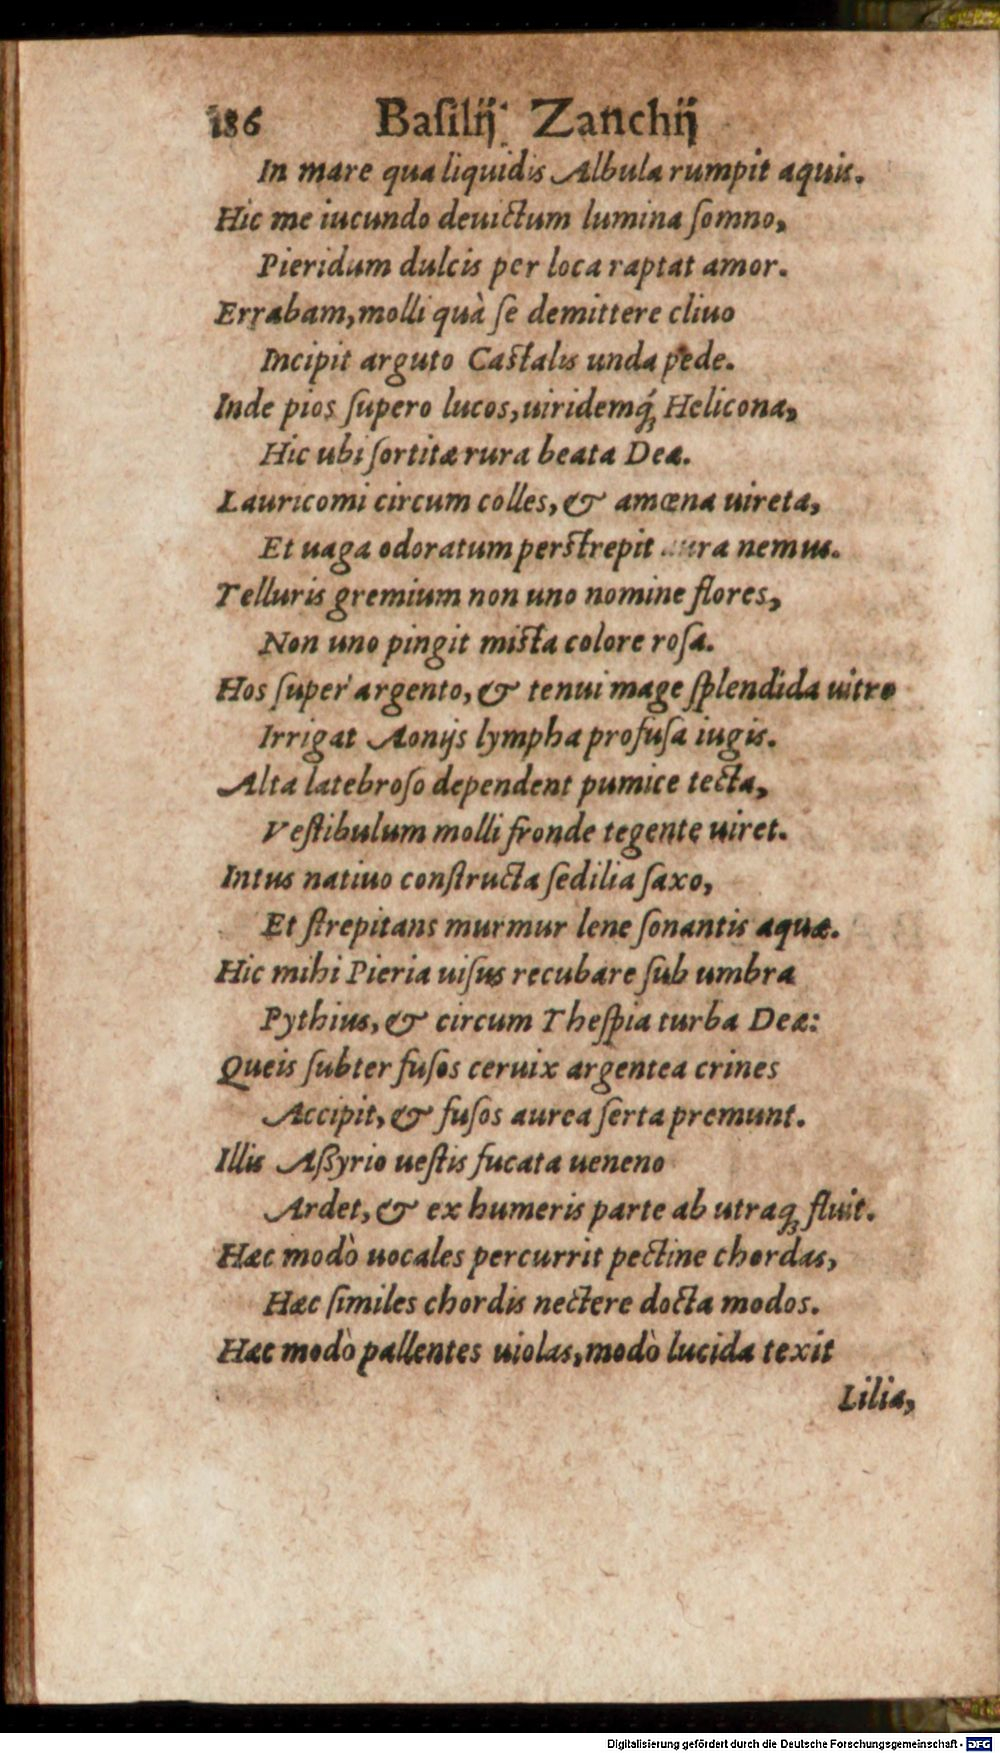 186 Baſilĳ Zanchĳ
In mare qua liquidis Albula rumpit aquis.
Hic me iucundo deuictum lumina ſomno,
Pieridum dulcis per loca raptat amor.
Errabam, molli quà ſe demittere cliuo
Incipit arguto Caſtalis unda pede.
Inde pios ſupero lucos, uiridemq́; Helicona,
Hic ubi ſortitæ rura beata Deæ.
Lauricomi circum colles, & amœna uireta,
Et uaga odoratum perſtrepit nemus.
Telluris gremium non uno nomine flores,
Non uno pingit miſta colore roſa.
Hos ſuper argento, & tenui mage ſplendida uitro
Irrigat Aonĳs lympha profuſa iugis.
Alta latebroſo dependent pumice tecta,
Veſtibulum molli fronde tegente uiret.
Intus natiuo conſtructa ſedilia ſaxo,
Et ſtrepitans murmur lene ſonantis aquæ.
Hic mihi Pieria uiſus recubare ſub umbra
Pythius, & circum Theſpia turba Deæ:
Queis ſubter fuſos ceruix argentea crines
Accipit, & fuſos aurea ſerta premunt.
Illis Aßyrio ueſtis fucata ueneno
Ardet, & ex humeris parte ab utraq; fluit.
Hæc modò uocales percurrit pectine chordas,
Hæc ſimiles chordis nectere docta modos.
Hæc modò pallentes uiolas, modò lucida texit
Lilia,
Digitalisierung gefördert durch die Deutsche Forschungsgemeinschaft - DFG